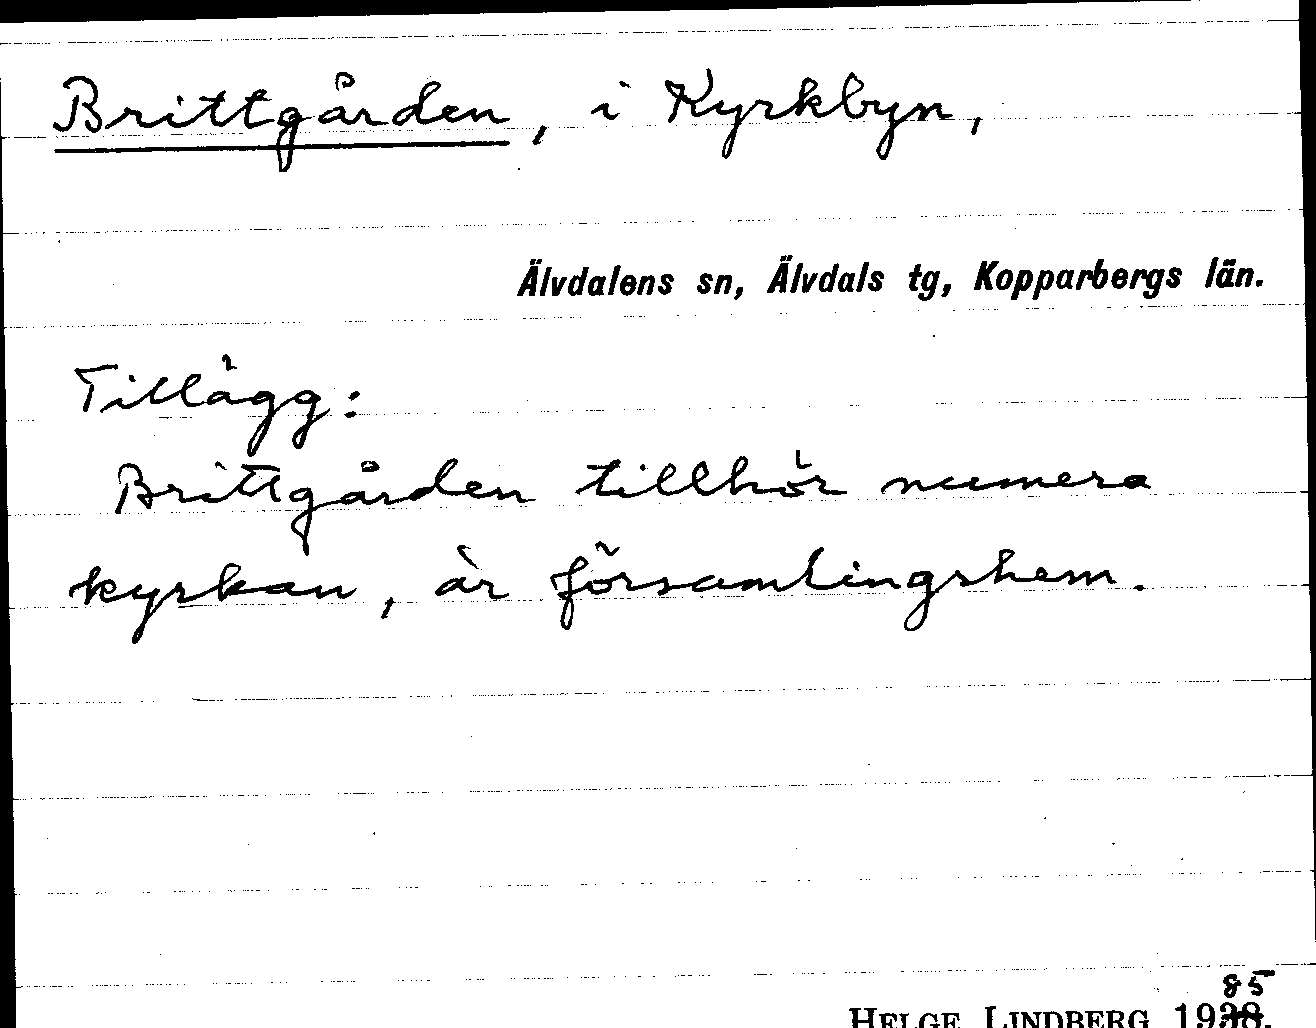 Brittgården, i Kyrkbyn,
Älvdalens sn, Älvdals tg, Kopparbergs län.
Tillägg:
Brittgården tillhör numera
kyrkan, är församlingshem.
85
HELGE LINDBERG 1938.